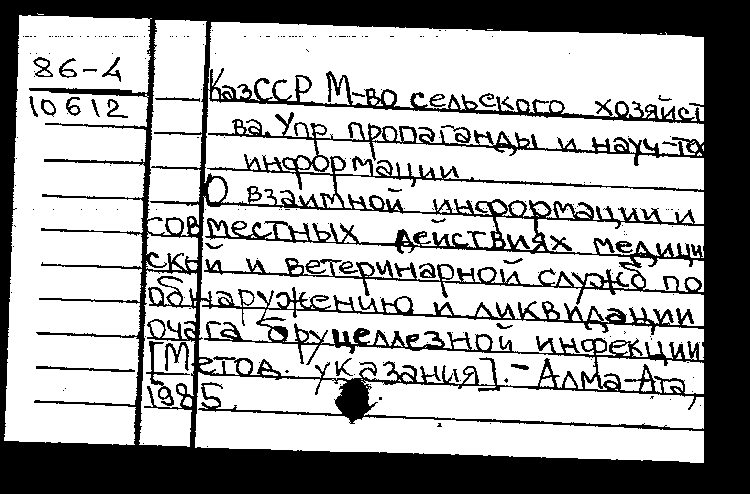 86-4
10612
КазССР М-во сельского хозяйст
ва. Упр. пропаганды и науч-тех
информации.
О взаимной информации и
совместных действиях медици
ской и ветеринарной служб по
обнаружению и ликвидации
очага бруцеллезной инфекции
[Метод. указания].-Алма-Ата,
1985.